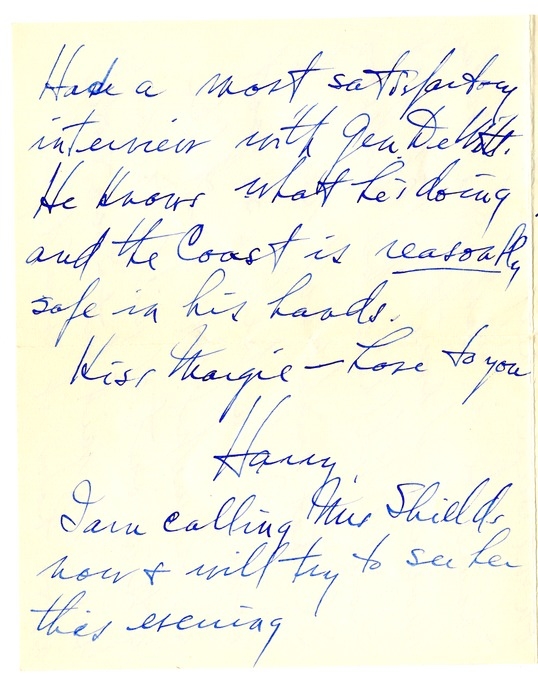 Had a most satisfactory
interview with Gen DeWitt.
He knows what he's doing
and the Coast is reasonably
safe in his hands.
Kiss Margie – Love to you
Harry.
I am calling Mrs Shields
now & will try to see her
this evening